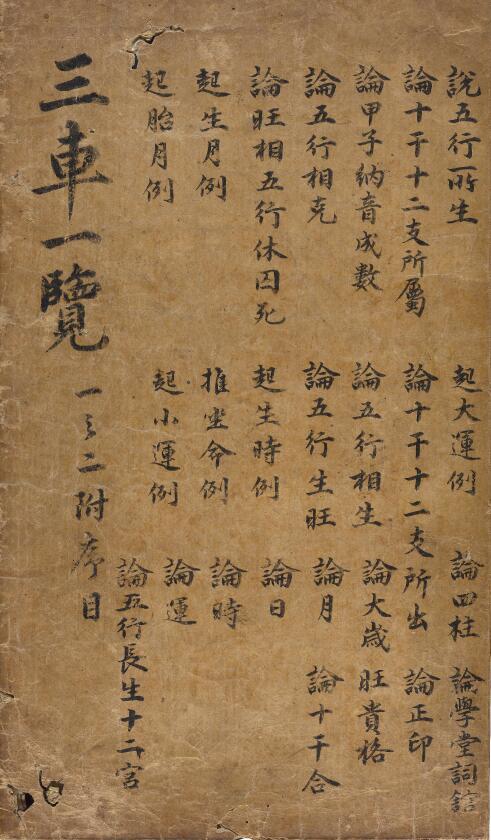 說五行所生　起大運例　論四柱　論學堂詞館
論十干十二支所屬　論十干十二支所出　論正印
論甲子納音成數　論五行相生　論大歲　旺貴格
論五行相克　論五行生旺　論月　論十干合
論旺相五行休囚死　起生時例　論日
起生月例　推坐命例　論時
起胎月例　起小運例　論運
論五行長生十二宮
三車一覽　一之二附序目